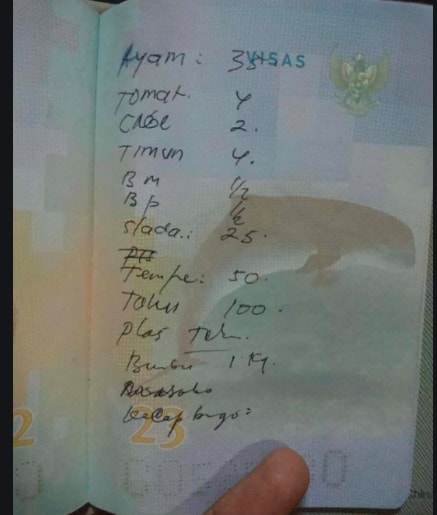 VISAS
Ayam: 35
Tomat. 4
Cabe 2.
Timun 4.
BM 1/2
BP 1/2
Slada.: 25.
Tempe: 50.
Tahu 100.
Plas Teh.
Bumbu 1 M.
Kecap
23
2